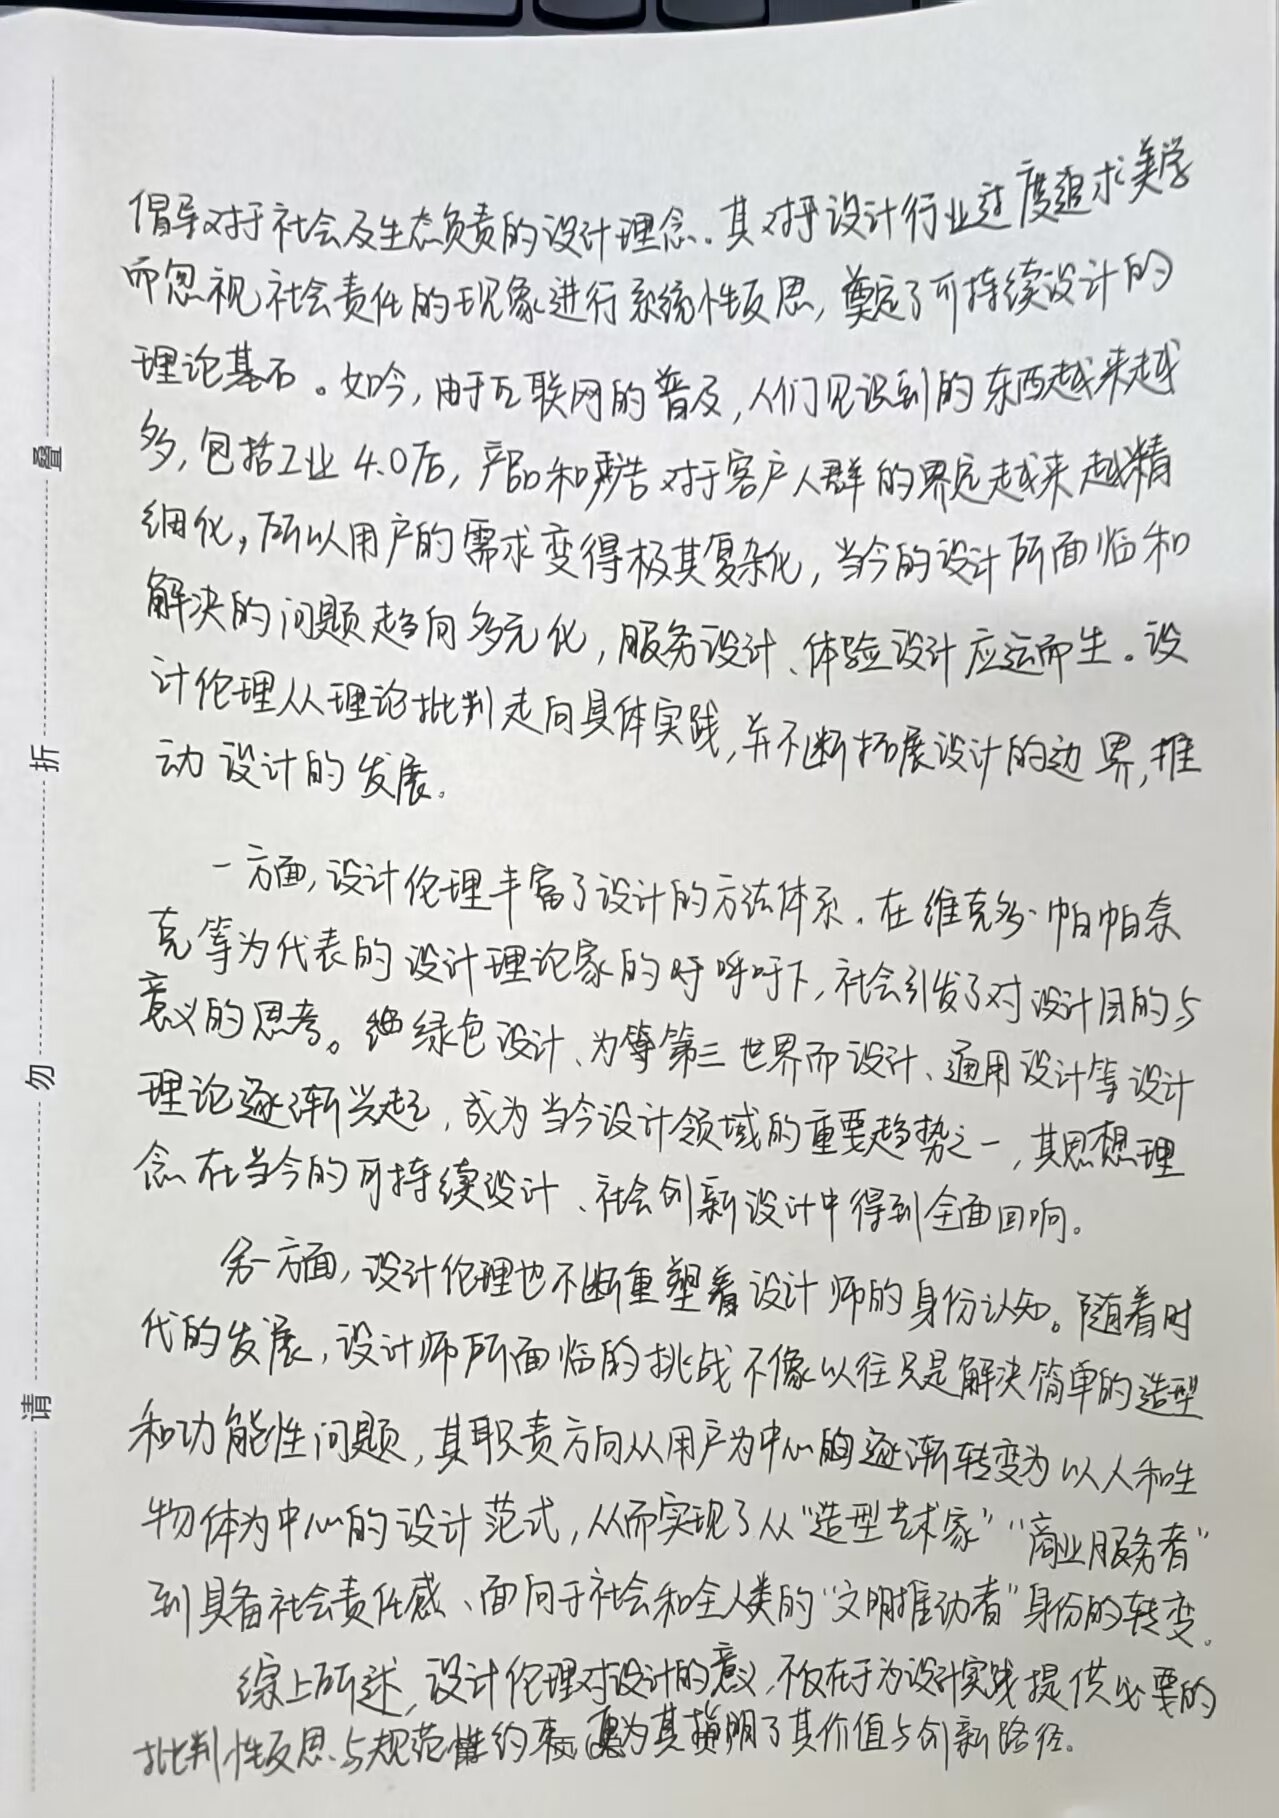 倡导对于社会及生态负责的设计理念。其对于设计行业过度追求美学
而忽视社会责任的现象进行系统性反思，奠定了可持续设计的
理论基石。如今，由于互联网的普及，人们见识到的东西越来越
多，包括工业4.0后，产品和广告对于客户人群的界定越来越精
细化，所以用户的需求变得极其复杂化，当今的设计所面临和
解决的问题趋向多元化，服务设计、体验设计应运而生。设
计伦理从理论批判走向具体实践，并不断拓展设计的边界，推
动设计的发展。
一方面，设计伦理丰富了设计的方法体系。在维克多·帕帕奈
克等为代表的设计理论家的呼吁下，社会引发了对设计目的与
意义的思考。绿色设计、为第三世界而设计、通用设计等设计
理论逐渐兴起，成为当今设计领域的重要趋势之一，其思想理
念在当今的可持续设计、社会创新设计中得到全面回响。
另一方面，设计伦理也不断重塑着设计师的身份认知。随着时
代的发展，设计师所面临的挑战不像以往只是解决简单的造型
和功能性问题，其职责方向从用户为中心逐渐转变为以人和生
物体为中心的设计范式，从而实现了从“造型艺术家”“商业服务者”
到具备社会责任感、面向于社会和全人类的“文明推动者”身份的转变。
综上所述，设计伦理对设计的意义，不仅在于为设计实践提供必要的
批判性反思与规范性约束，更为其指明了其价值与创新路径。
叠
折
勿
请